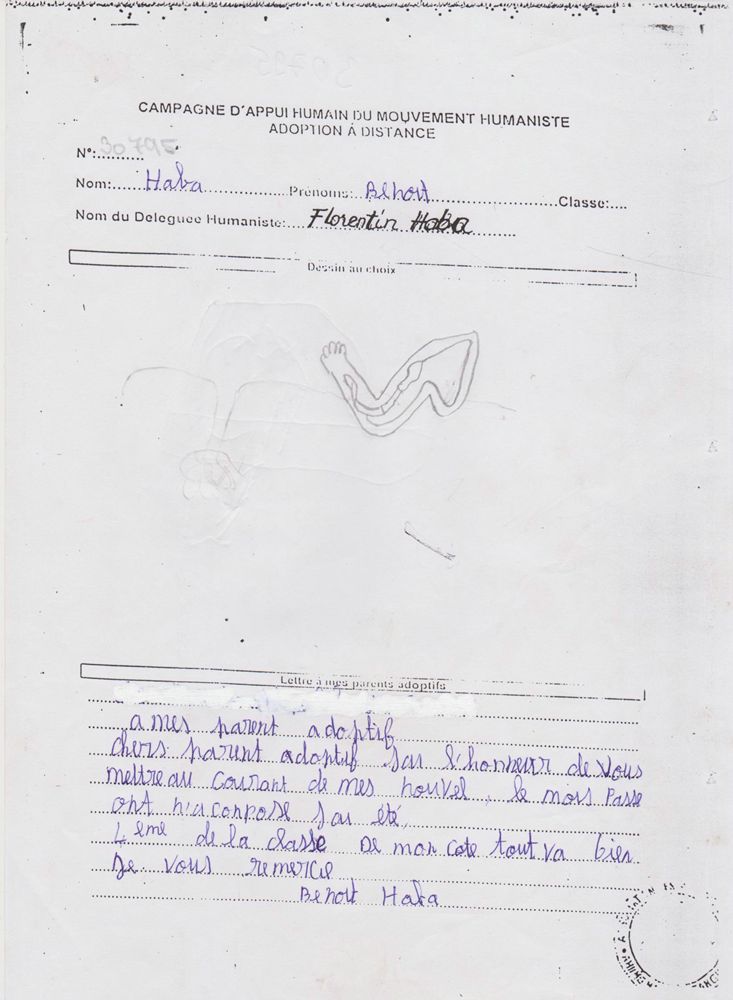 CAMPAGNE D'APPUI HUMAIN DU MOUVEMENT HUMANISTE
ADOPTION À DISTANCE
N°:30795
Nom: Haba Prénoms: Benoit Classe:....
Nom du Deleguee Humaniste: Florentin Haba
Dessin au choix
Lettre à mes parents adoptifs
a mes parent adoptif
chers parent adoptif J'ai l'honneur de vous
mettre au courant de mes nouvel, le mois Passe
ont n'a conpose J'ai été
4 eme de la classe De mon cote tout va bien
Je vous remercie
Benoit Haba